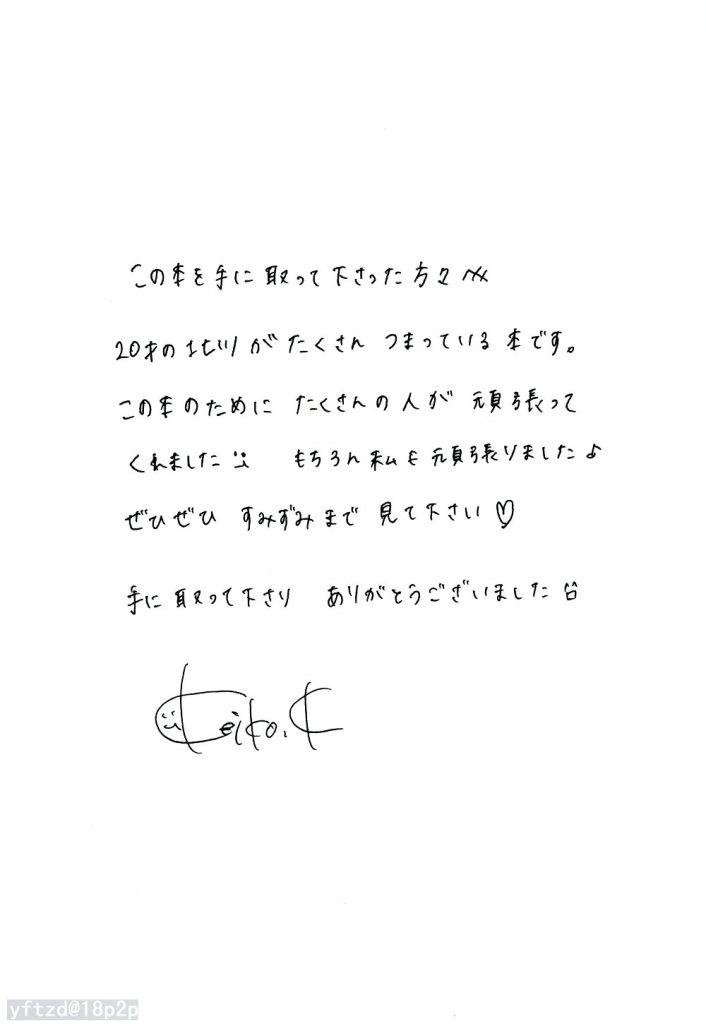 この本を手に取って下さった方々へ
20才の北川がたくさん つまっている 本です。
この本のために たくさんの人が 頑張って
くれました もちろん 私も 頑張りました♪
ぜひぜひ すみずみまで 見て下さい♡
手に取って下さり ありがとうございました
Keiko.K
yftzd@18p2p